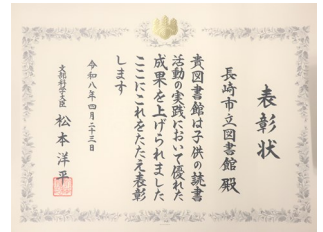 表彰状
長崎市立図書館 殿
貴図書館は子供の読書
活動の実践において優れた
成果を上げられました
ここにこれをたたえ表彰
します
令和八年四月二十三日
文部科学大臣 松本洋平